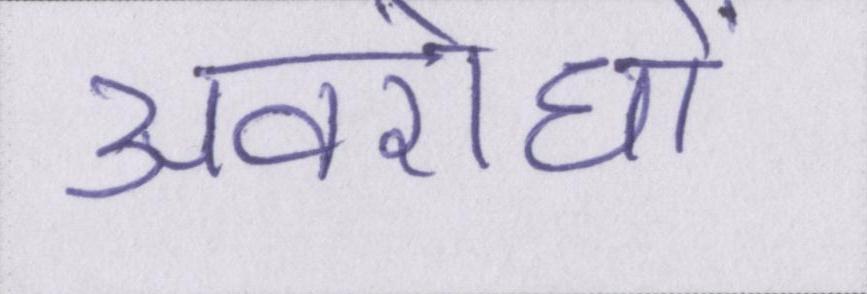 अवरोधों